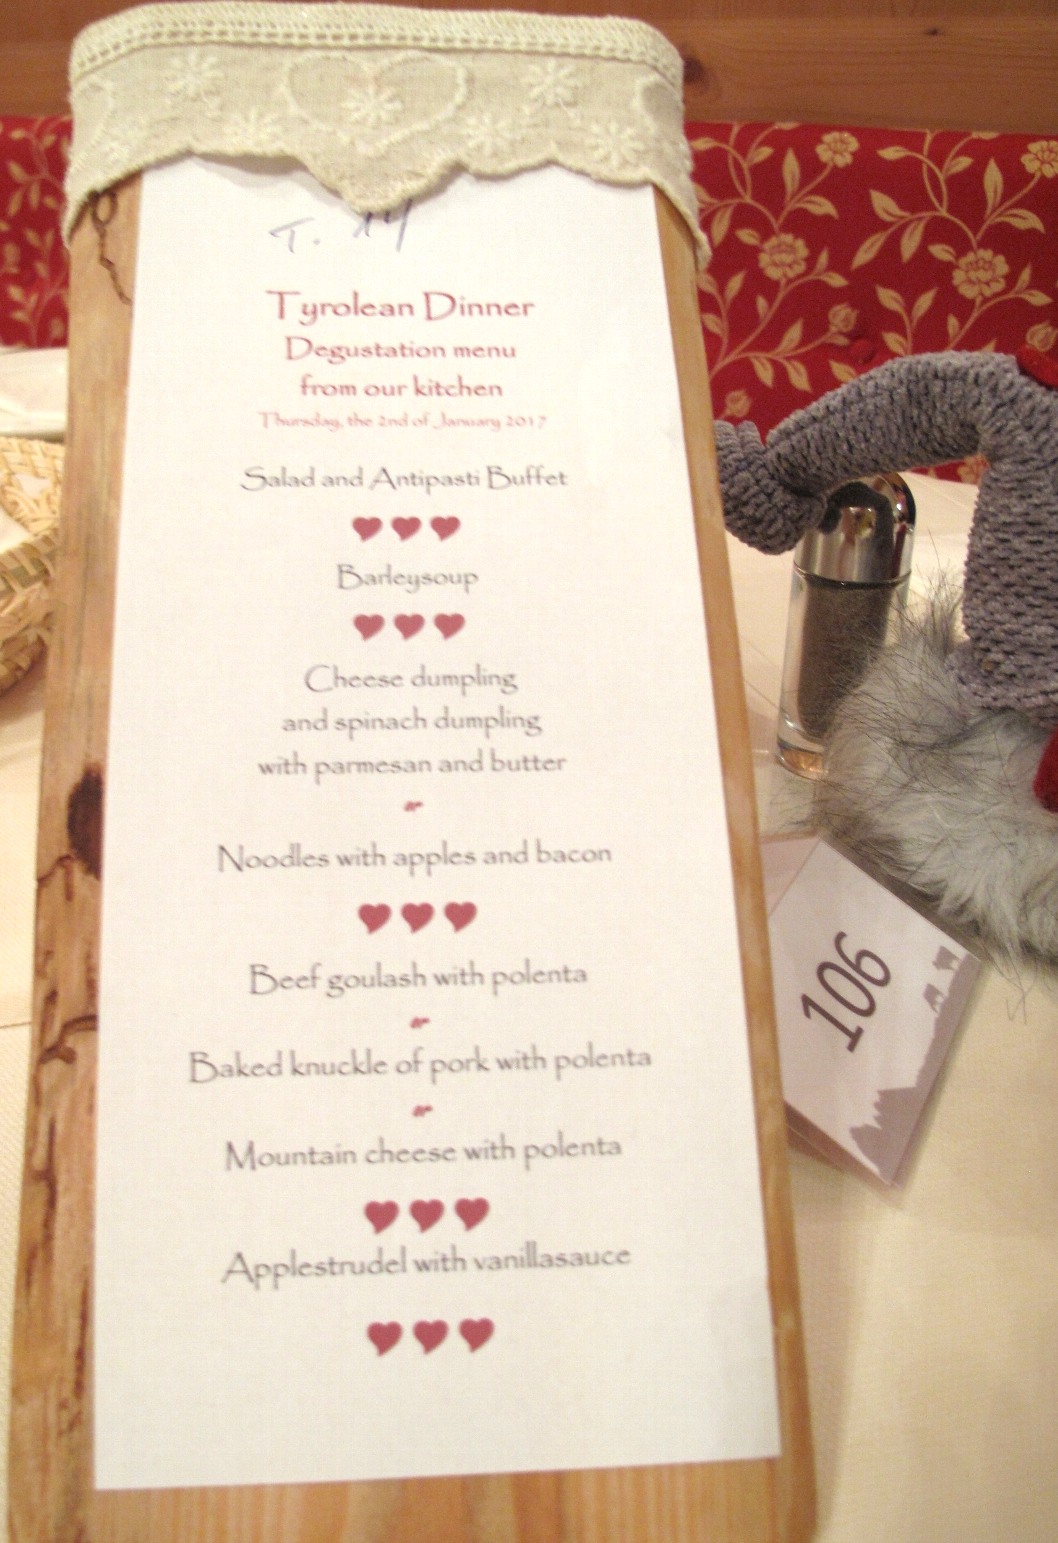 T. 14
Tyrolean Dinner
Degustation menu
from our kitchen
Thursday, the 2nd of January 2017
Salad and Antipasti Buffet
Barleysoup
Cheese dumpling
and spinach dumpling
with parmesan and butter
or
Noodles with apples and bacon
Beef goulash with polenta
or
Baked knuckle of pork with polenta
or
Mountain cheese with polenta
Applestrudel with vanillasauce
106